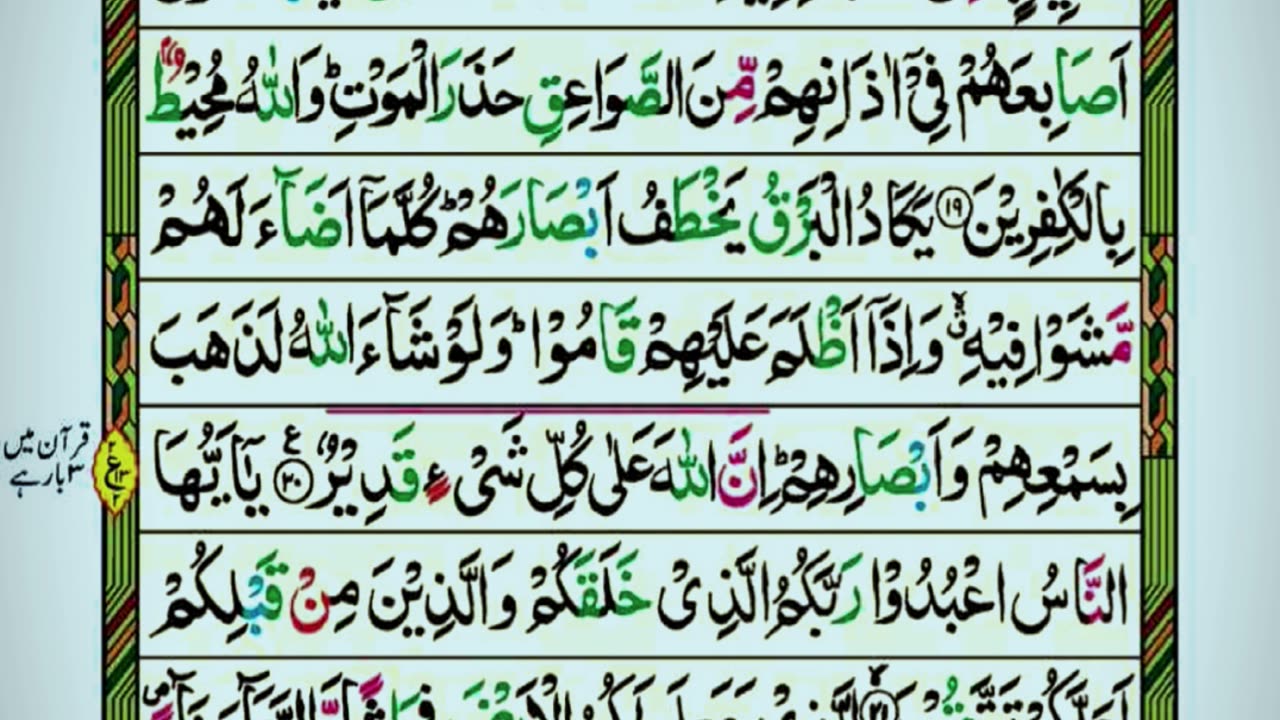 اَصَابِعَهُمْ فِيْۤ اٰذَانِهِمْ مِّنَ الصَّوَاعِقِ حَذَرَ الْمَوْتِ ؕ وَاللّٰهُ مُحِيْطٌۢ
بِالْكٰفِرِيْنَ ۝۱۹ يَكَادُ الْبَرْقُ يَخْطَفُ اَبْصَارَهُمْ ؕ كُلَّمَاۤ اَضَآءَ لَهُمْ
مَّشَوْا فِيْهِ ۙ وَاِذَاۤ اَظْلَمَ عَلَيْهِمْ قَامُوْا ؕ وَلَوْ شَآءَ اللّٰهُ لَذَهَبَ
بِسَمْعِهِمْ وَاَبْصَارِهِمْ ؕ اِنَّ اللّٰهَ عَلٰى كُلِّ شَىْءٍ قَدِيْرٌ ۝۲۰ ع يٰۤاَيُّهَا
قرآن میں
۳ بار ہے
النَّاسُ اعْبُدُوْا رَبَّكُمُ الَّذِىْ خَلَقَكُمْ وَالَّذِيْنَ مِنْ قَبْلِكُمْ